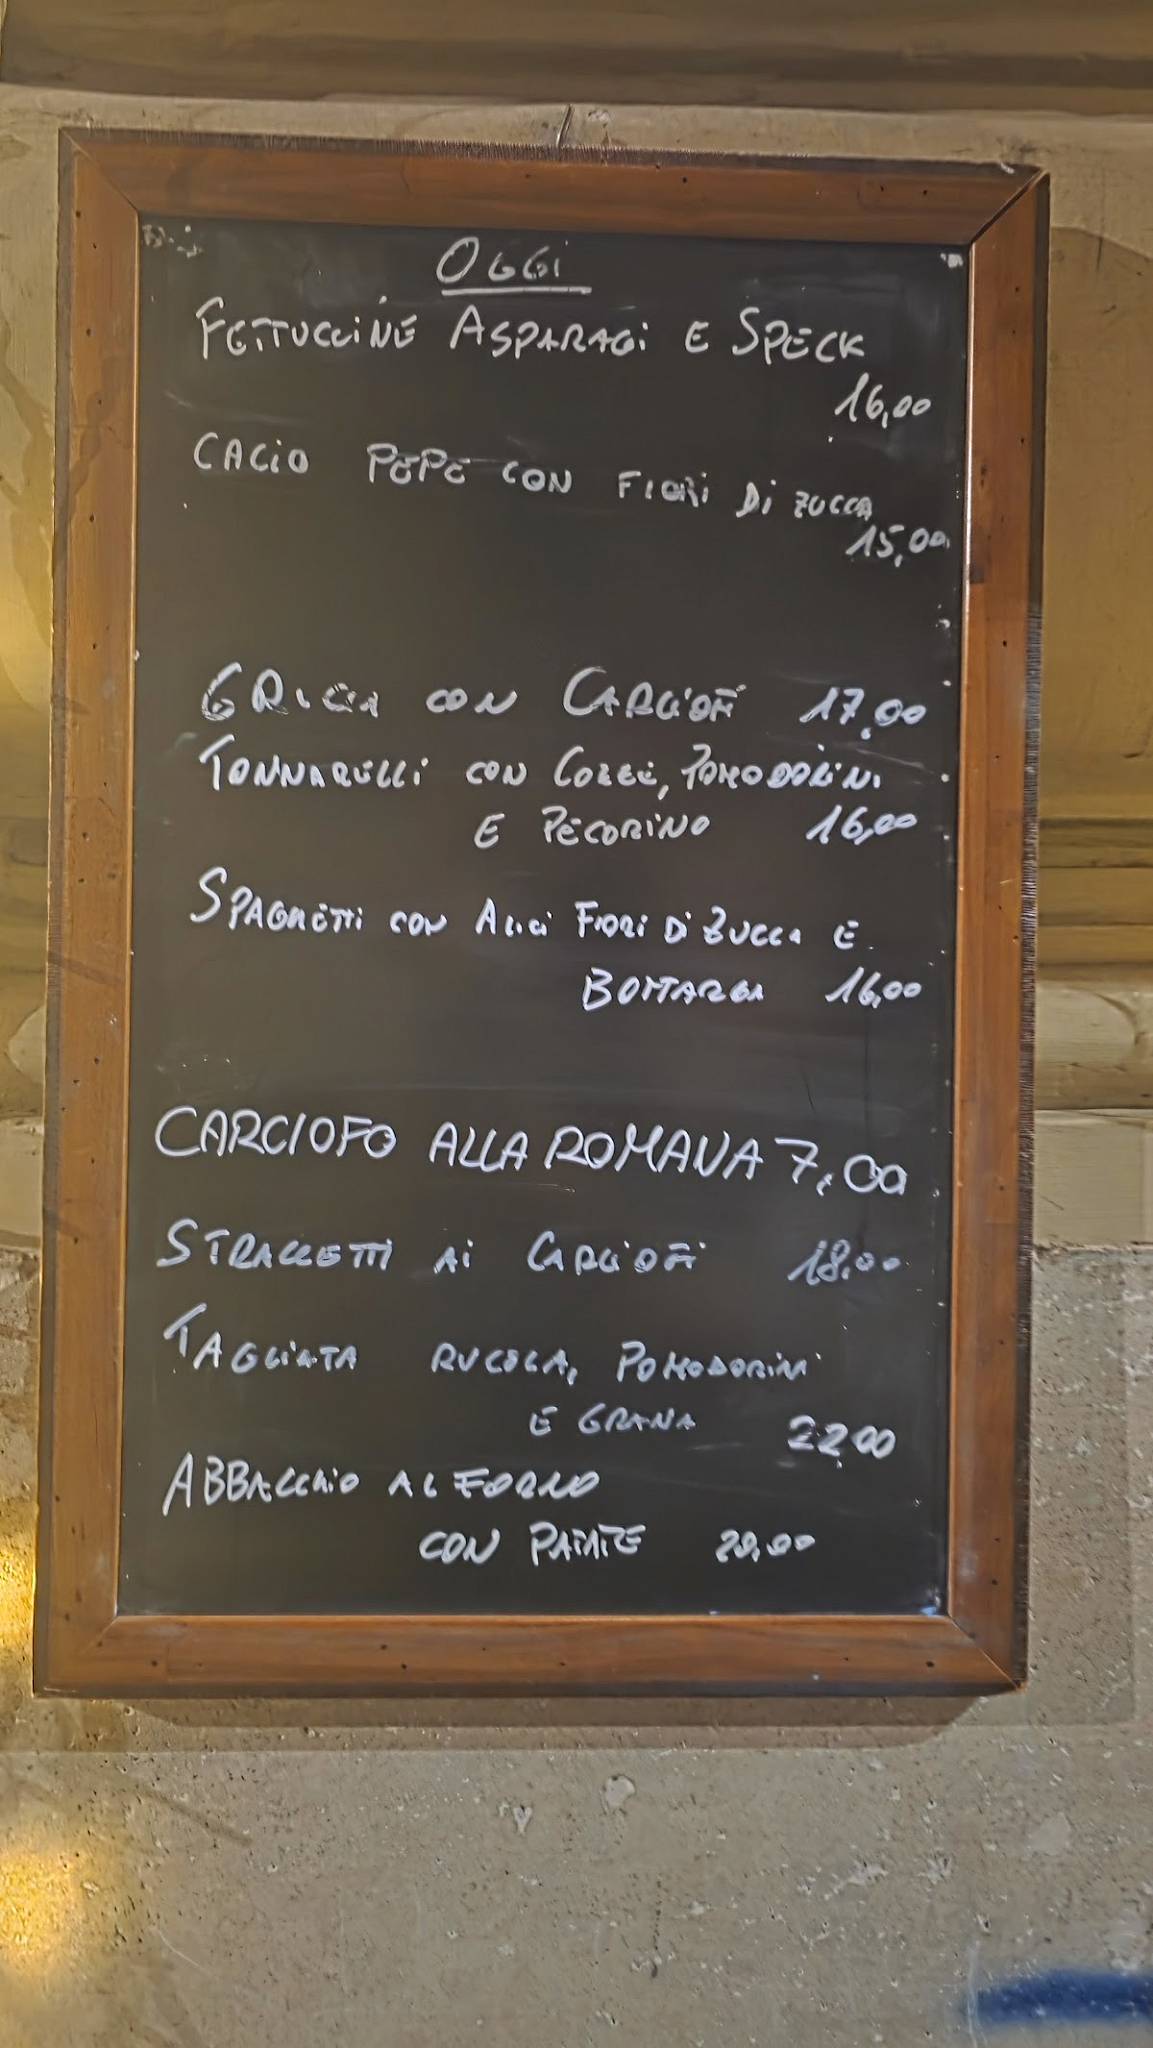 OGGi
FETTUCCiNE ASPARAGi E SPECK
16,00
CACiO PEPE CON FiORi Di ZUCCA
15,00
GRICIA CON CARCiOFi 17,00
TONNARELLi CON COZZE, POMODORiNi
E PECORINO 16,00
SPAGHETTi CON ALICi FIORi Di ZUCCA E
BOTTARGA 16,00
CARCIOFO ALLA ROMANA 7,00
STRACCETTI Ai CARCiOFi 18,00
TAGLiATA RUCOLA, POMODORINi
E GRANA 22,00
ABBACChiO AL FORNO
CON PATATE 20,00